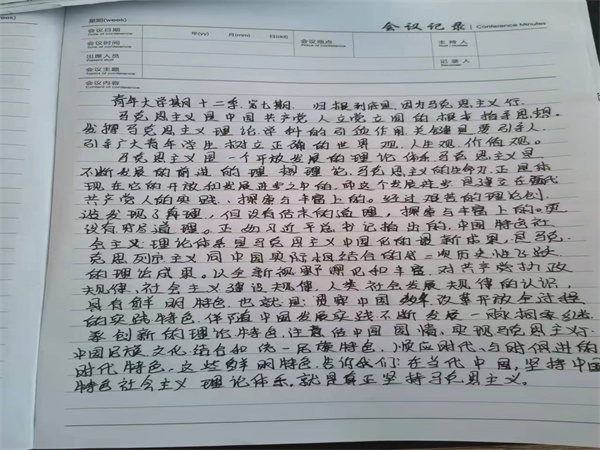 星期(week)
会议记录 | Conference Minutes
会议日期 年(yy) 月(mm) 日(dd) 会议地点 主持人
会议时间
出席人员 记录人
会议主题
会议内容
青年大学期 十二季 第七期 归根到底是因为马克思主义行
马克思主义是中国共产党人立党立国的根本指导思想.
发挥马克思主义理论学科的引领作用 关键是要引导人
引导广大青年学生树立正确的世界观,人生观,价值观。
马克思主义国一个开放发展的理论体系马克思主义是
不断发展的前进的理 理论,马克思主义的生命力正是体
现在它的开放和发展进步之中的,而这个发展进步是建立在
共产党人的实践、探索与丰富上的。经过艰苦的理论创
造发现了真理,但没有估本的道理,探索与丰富上的。更
没有穷尽道理。正如习近平总书记指出的,中国特色社
会主义理论体系是马克思主义中国化的最新成果,是马克
克思列宁主义同中国实际相结合的 次历史性飞跃
的理论成果。以全新视野深化和丰富,对共产党执政
规律、社会主义建设规律、人类社会发展规律的认识,
具有鲜明特色 也就是:贯穿中国 改革开放全过程
的实践特色,伴随中国发展实践不断发展一脉相承继
承创新的理论特色,注意估中国国情,实现马克思主义行
中国民族文化结合和统一民族特色,顺应时代、与时俱进的
时代特色,这些鲜明特色告诉我们:在当代中国,坚持中国
特色社会主义理论体系,就是真正坚持马克思主义。